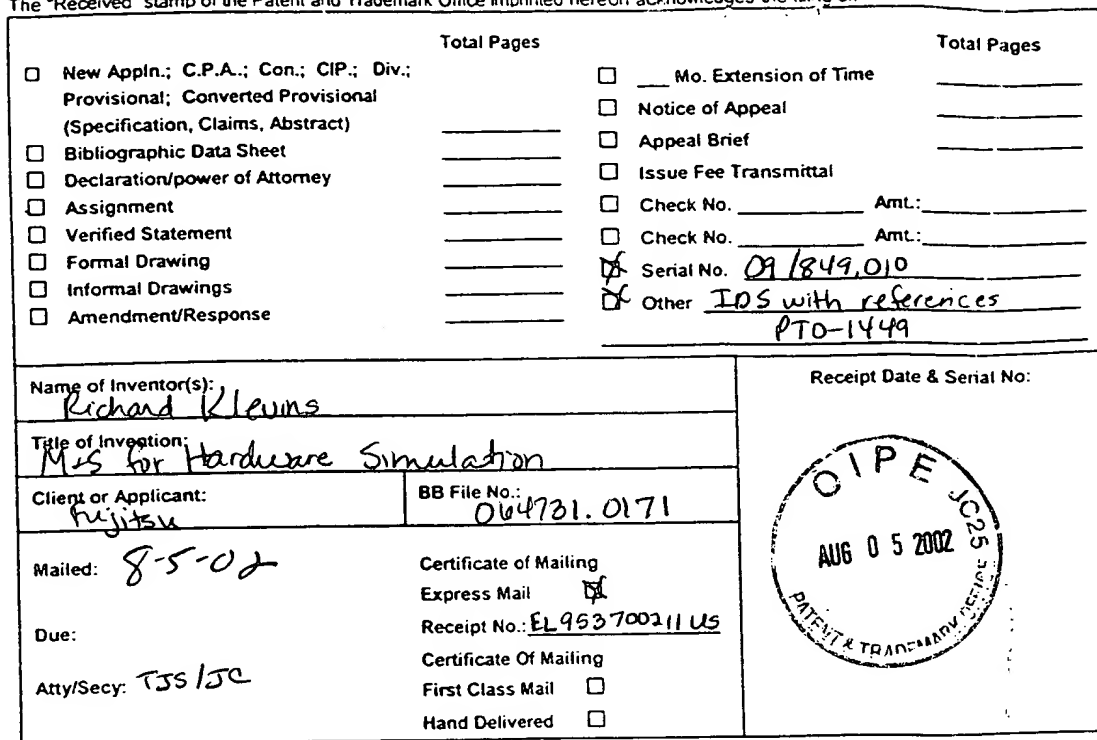 The "Received" stamp of the Patent and Trademark Office imprinted hereon acknowledges the filing of:
Total Pages
New Appln.; C.P.A..; Con.; CIP.; Div.;
Provisional; Converted Provisional
(Specification, Claims, Abstract)
Bibliographic Data Sheet
Declaration/power of Attorney
Assignment
Verified Statement
Formal Drawing
Informal Drawings
Amendment/Response
Total Pages
___ Mo. Extension of Time
Notice of Appeal
Appeal Brief
Issue Fee Transmittal
Check No. __________ Amt.: __________
Check No. __________ Amt.: __________
Serial No. 09/849,010
Other IDS with references
PTO-1449
Name of Inventor(s):
Richard Klevins
Title of Invention:
M+S for Hardware Simulation
Client or Applicant:
Fujitsu
BB File No.:
064731.0171
Mailed: 8-5-02
Due:
Atty/Secy: TJS/JC
Certificate of Mailing
Express Mail
Receipt No.: EL953700211US
Certificate Of Mailing
First Class Mail
Hand Delivered
Receipt Date & Serial No:
OIPE JC25
AUG 05 2002
PATENT & TRADEMARK OFFICE